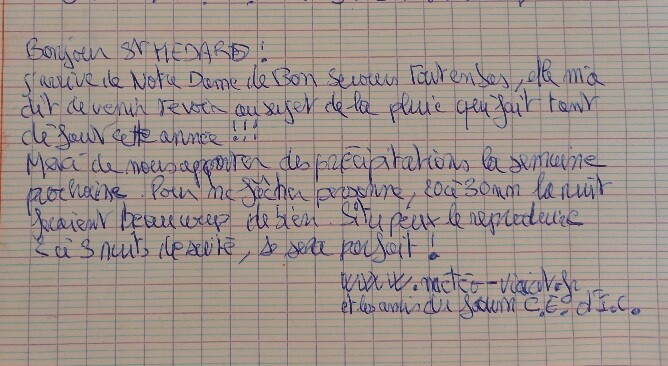 Bonjour St MEDARD !
J'arrive de Notre Dame de Bon Secours , elle m'a
dit de venir te voir au sujet de la pluie qui fait tant
défaut cette année !!!
Merci de nous apporter des précipitations la semaine
prochaine. Pour ne fâcher personne, 20 à 30mm la nuit
feraient beaucoup de bien. Si tu peux le reproduire
2 à 3 nuits de suite, se sera parfait !
www.meteo-
et les amis du forum C.E. d'I.C.